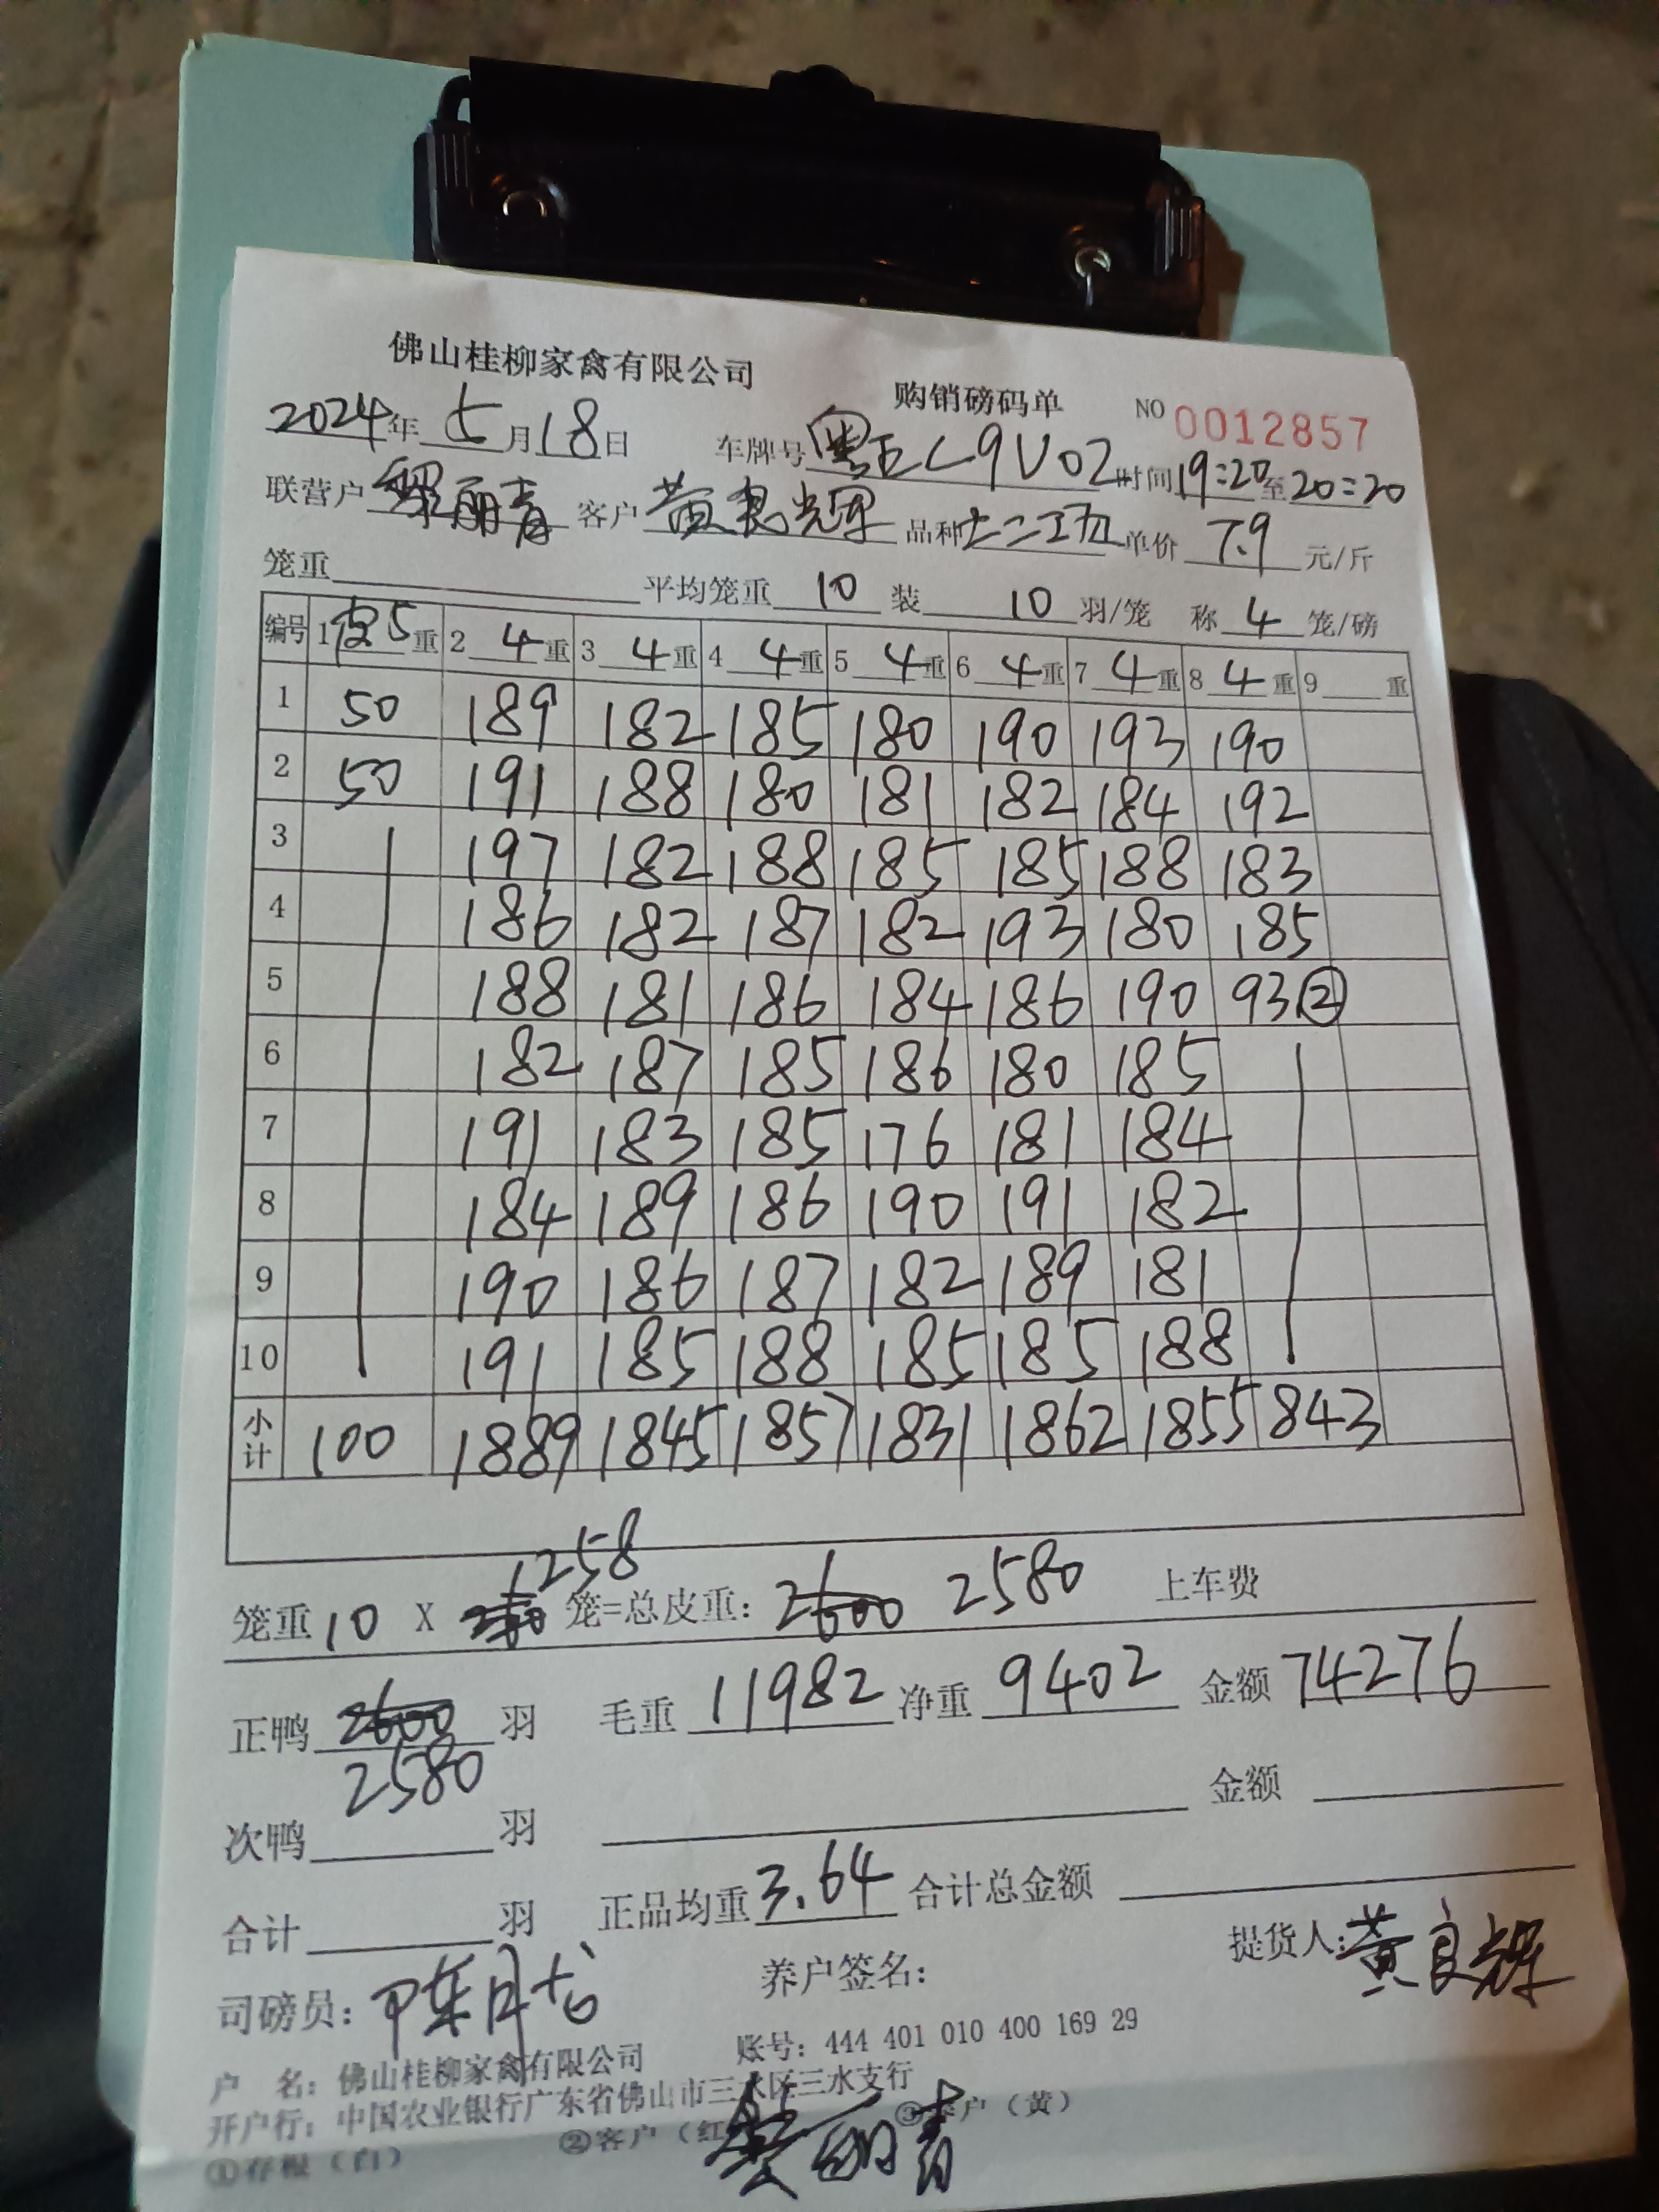 佛山桂柳家禽有限公司 购销磅码单 NO 0012857
2024年 5月18日 车牌号 粤E L9V02 时间19:20至20:20
联营户 黎丽青 客户 黄良辉 品种 单价 7.9 元/斤
笼重 平均笼重 10 装 10 羽/笼 称 4 笼/磅
编号 1 皮5重 2 4重 3 4重 4 4重 5 4重 6 4重 7 4重 8 4重 9 重
1 50 189 182 185 180 190 193 190
2 50 191 188 180 181 182 184 192
3 197 182 188 185 185 188 183
4 186 182 187 182 193 180 185
5 188 181 186 184 186 190 93②
6 182 187 185 186 180 185
7 191 183 185 176 181 184
8 184 189 186 190 191 182
9 190 186 187 182 189 181
10 191 185 188 185 185 188
小计 100 1889 1845 1857 1831 1862 1855 843
258
笼重 10 X 笼=总皮重: 2600 2580 上车费
正鸭 2600 羽 毛重 11982 净重 9402 金额 74276
2580
次鸭 羽 金额
合计 羽 正品均重 3.64 合计总金额
司磅员: 养户签名: 提货人: 黄良辉
户 名: 佛山桂柳家禽有限公司 账号: 444 401 010 400 169 29
开户行: 中国农业银行广东省佛山市三水区三水支行
①存根（白） ②客户（红 ③养户（黄）
黎丽青